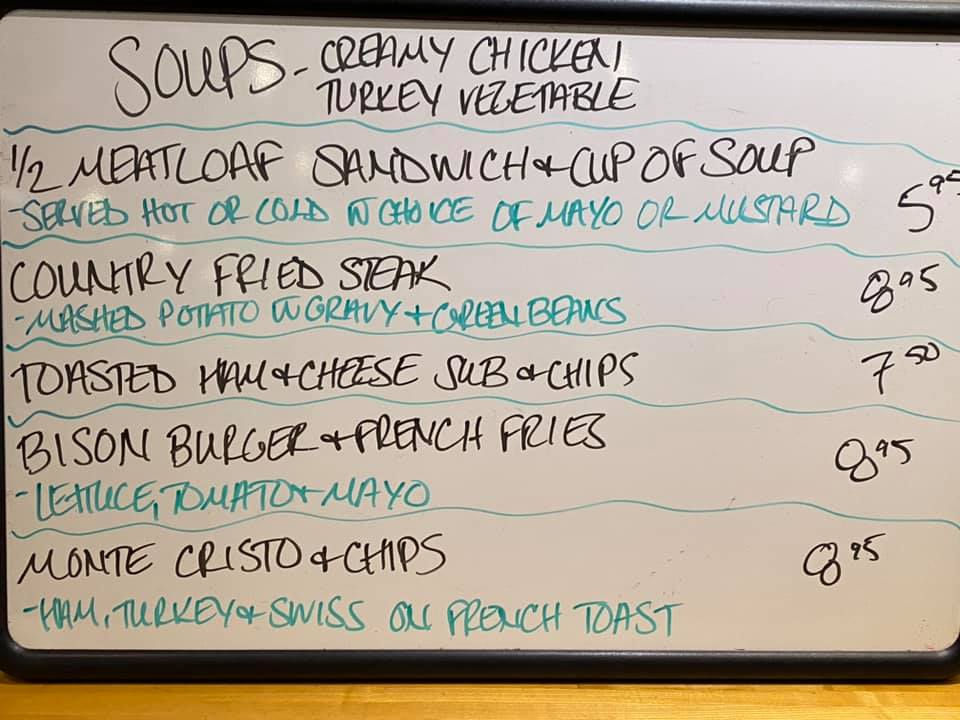 SOUPS - CREAMY CHICKEN
TURKEY VEGETABLE
1/2 MEATLOAF SANDWICH & CUP OF SOUP 5.95
- SERVED HOT OR COLD W CHOICE OF MAYO OR MUSTARD
COUNTRY FRIED STEAK 8.95
- MASHED POTATO W GRAVY + GREEN BEANS
TOASTED HAM & CHEESE SUB & CHIPS 7.50
BISON BURGER & FRENCH FRIES 8.95
- LETTUCE, TOMATO + MAYO
MONTE CRISTO & CHIPS 8.95
- HAM, TURKEY & SWISS ON FRENCH TOAST